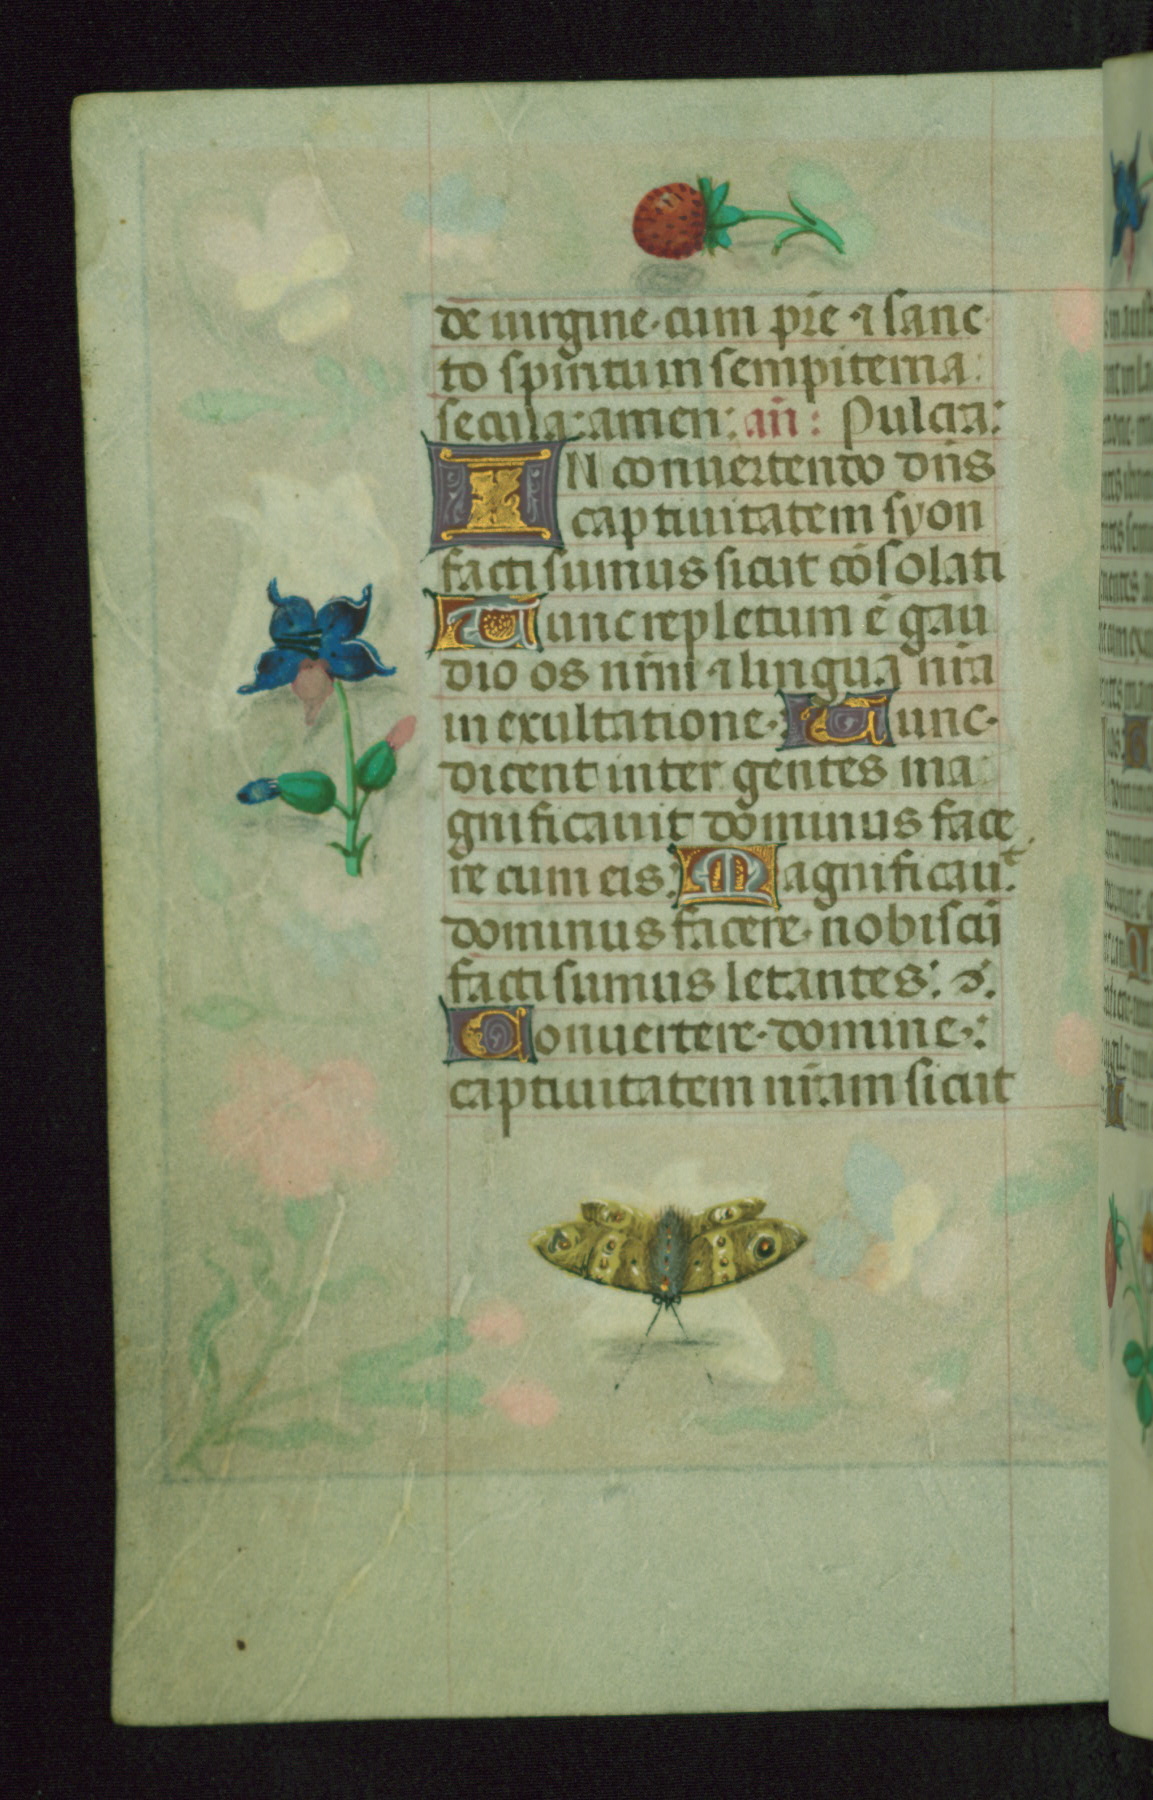 de uirgine·cum pr̄e ⁊ sanc·
to spiritu in sempiterna:
secula: amen: an̄: Pulcra:
IN conuertendo dn̄s
captiuitatem syon
facti sumus sicut cōsolati
Tunc repletum ē gau
dio os nr̄m ⁊ lingua nr̄a
in exultatione· Tunc·
dicent inter gentes ma
gnificauit dominus face
re cum eis: Magnificauᵗ:
dominus facere·nobiscū
facti sumus letantes:
Conuertere·domine·:
captiuitatem nr̄am sicut